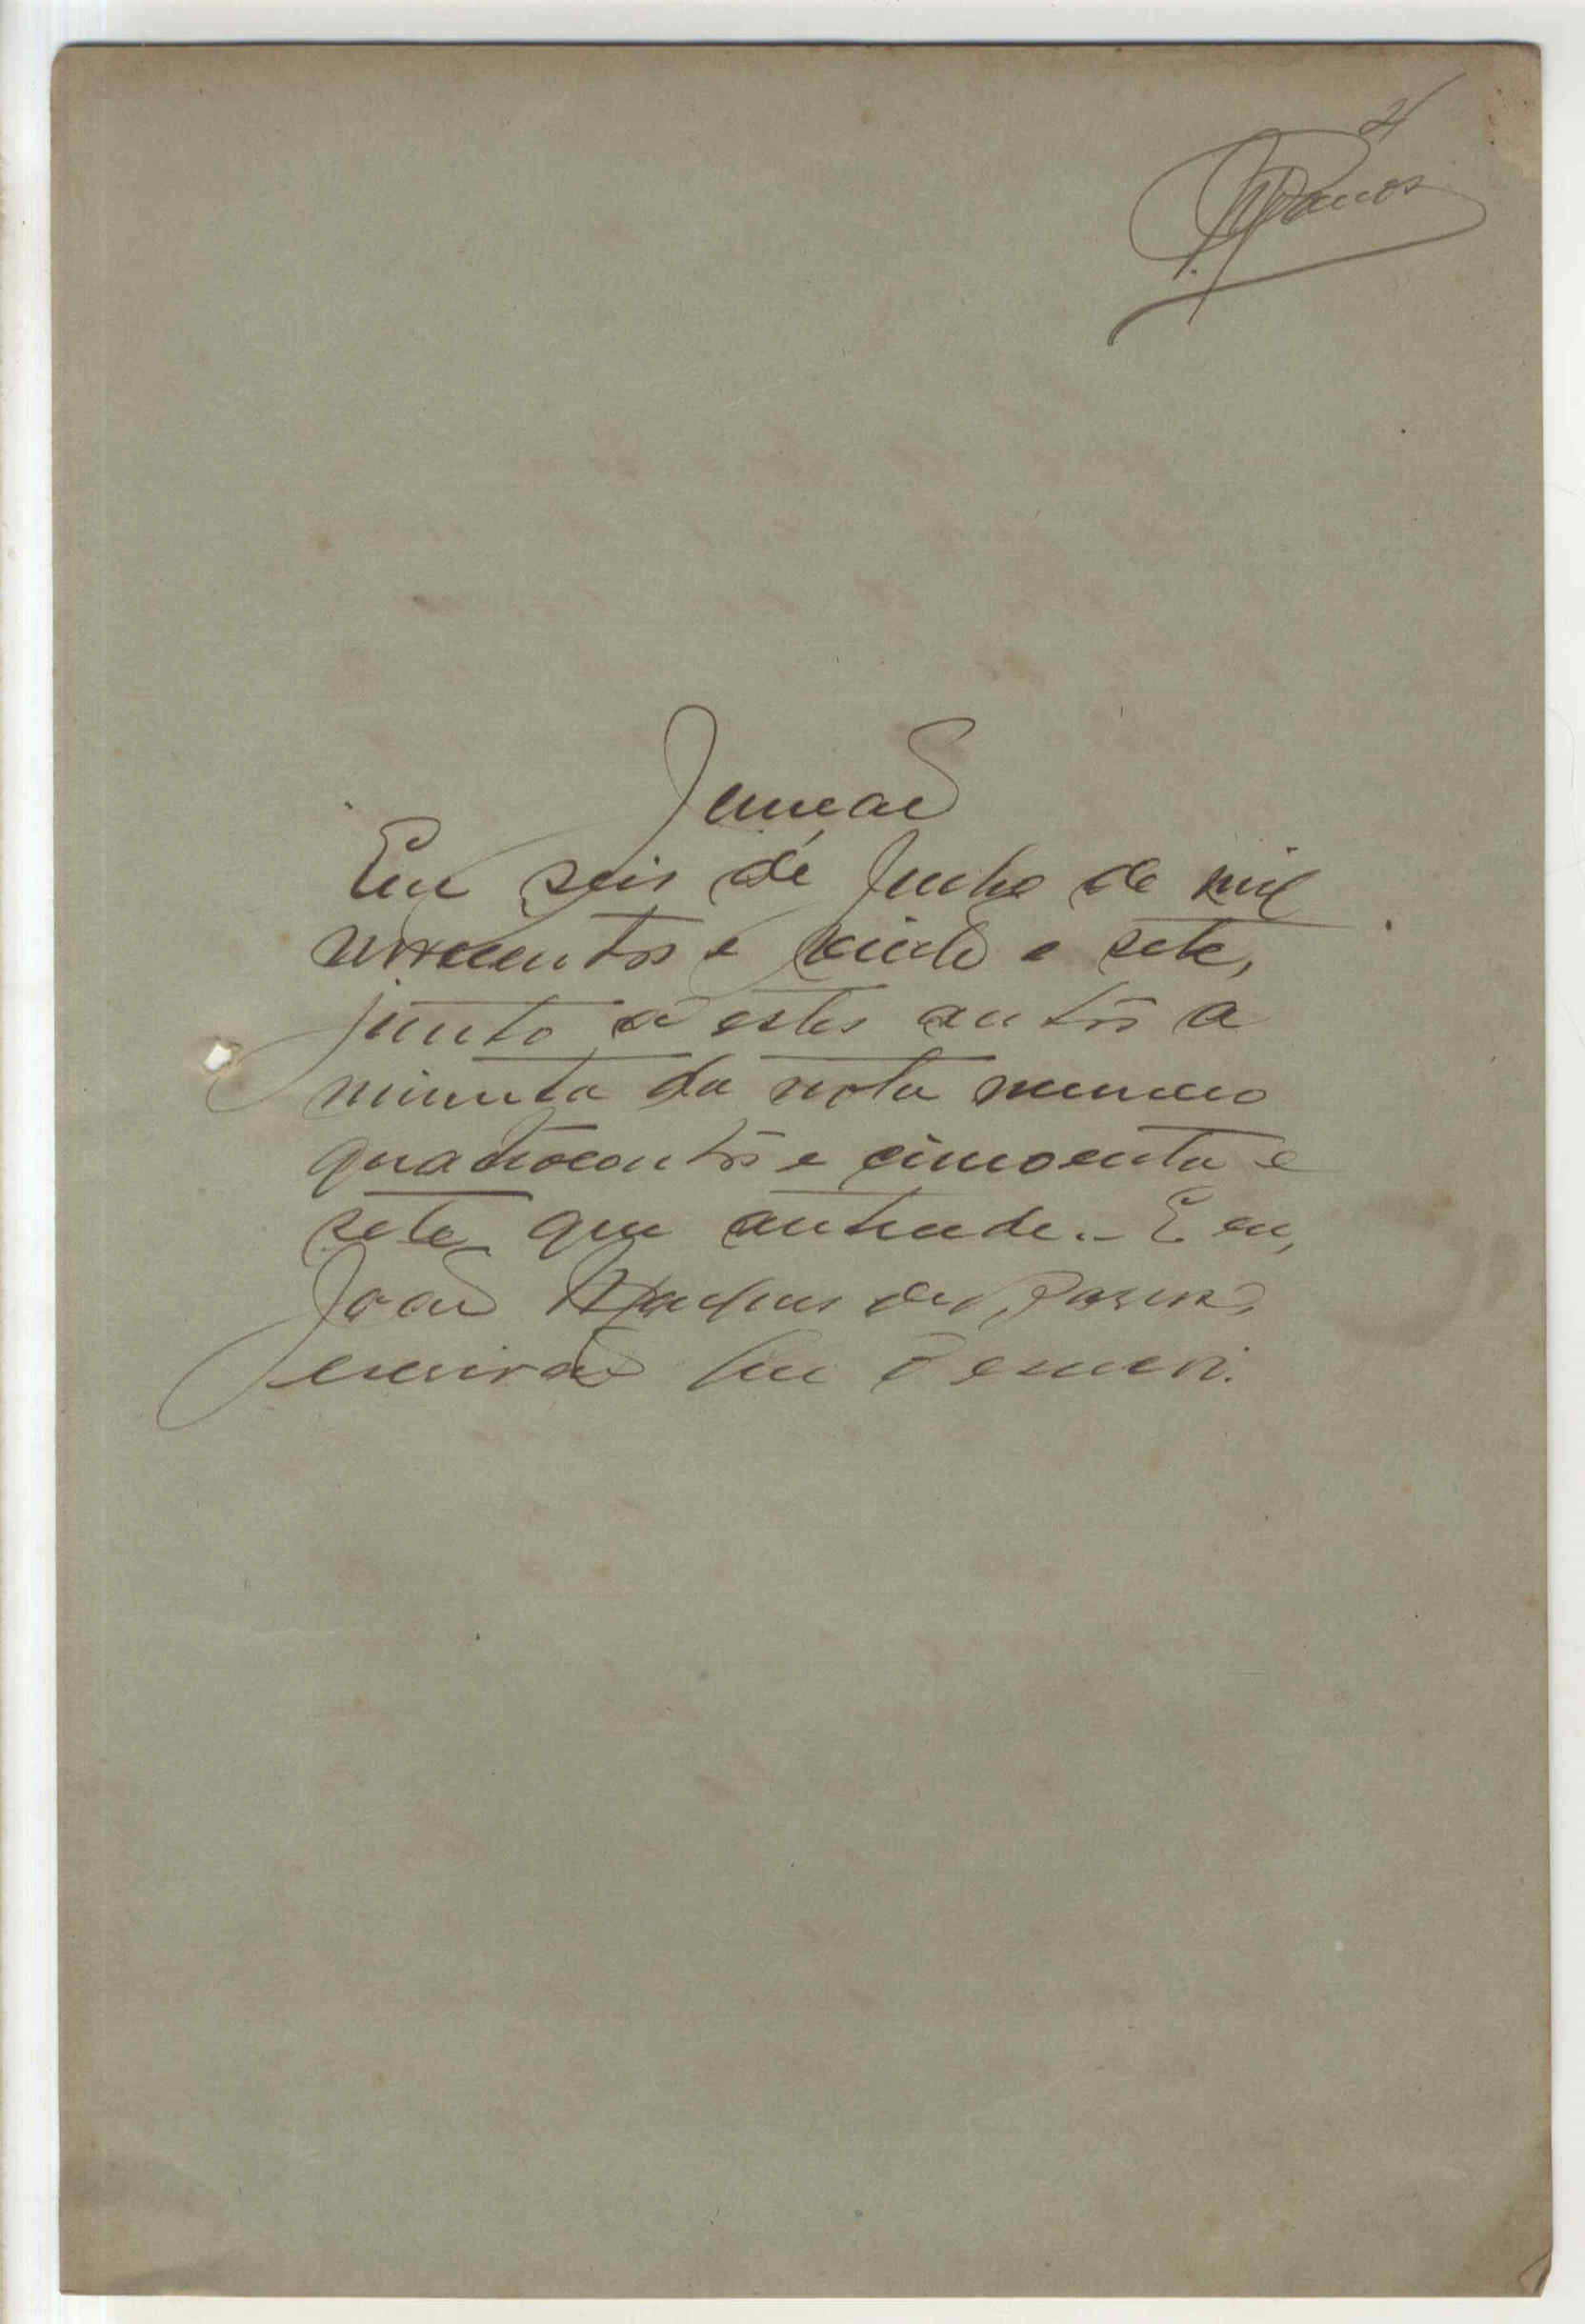 Juncção
Em seis de Junho de mil
novecentos e vinte e sete,
junto a estes autos a
minuta da nota numero
quatrocentos e cincoenta e
sete que antecede. - E eu,
João Marques dos Passos,
escrivão que o escrevi.